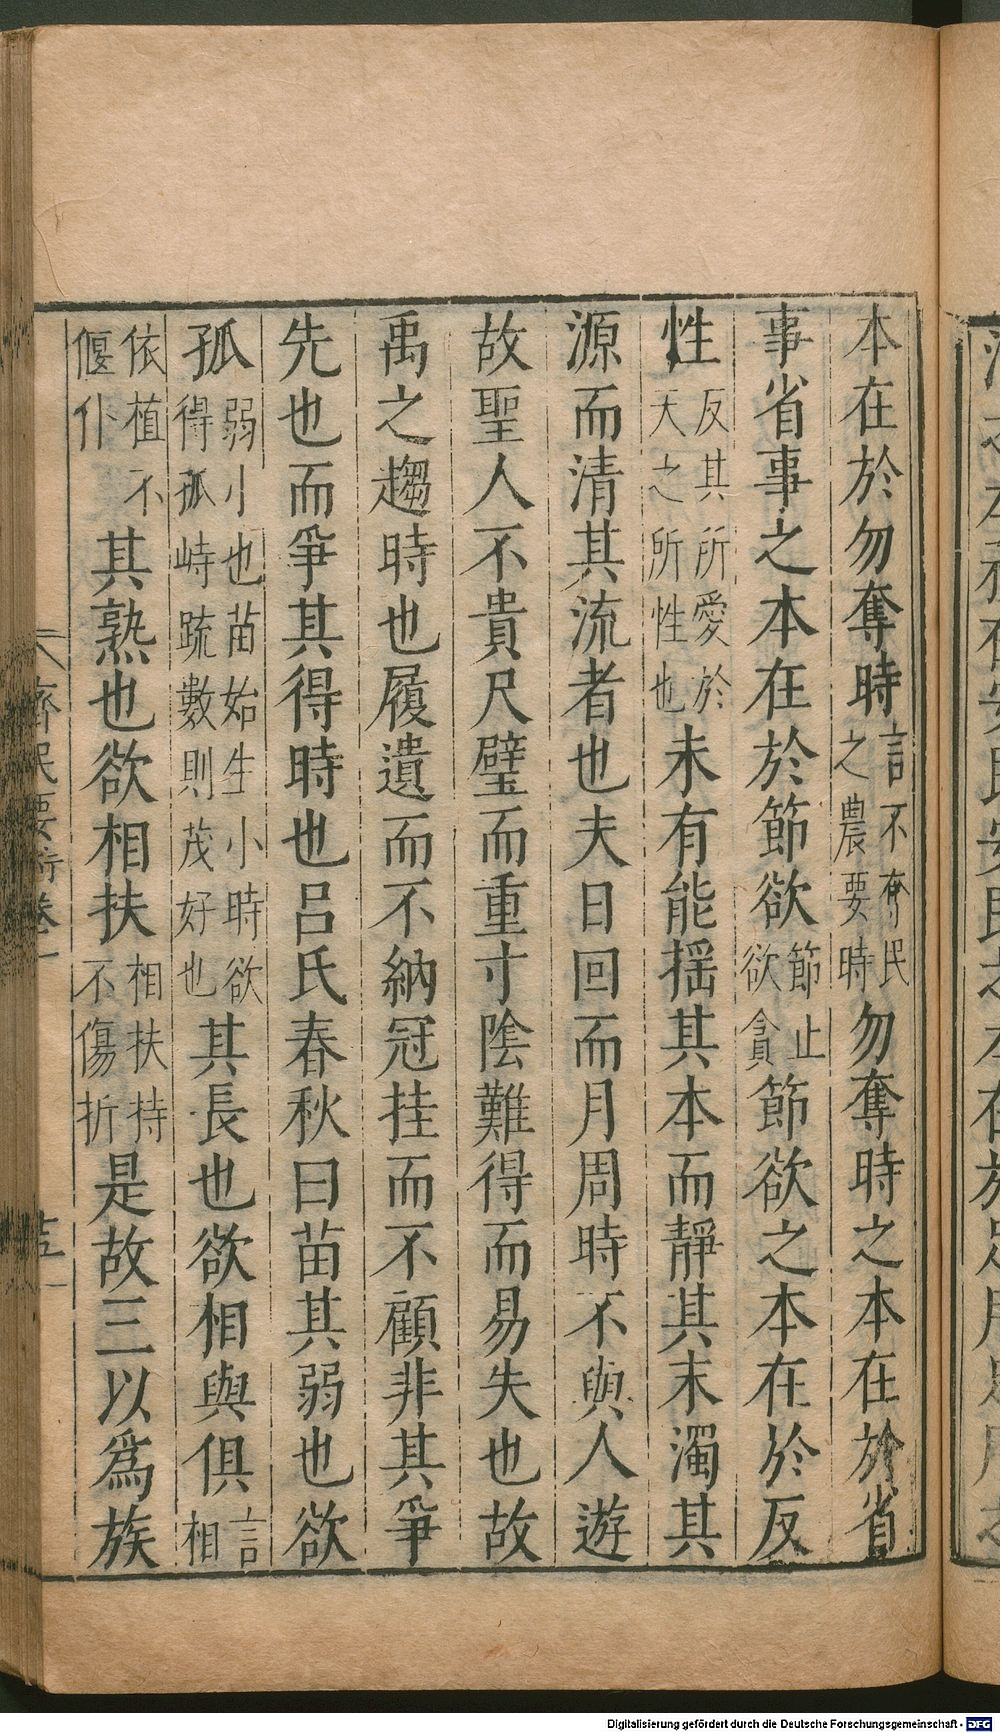 本在於勿奪時言不奪民之農要時勿奪時之本在於省
事省事之本在於節欲節止欲貪節欲之本在於反
性反其所愛於天之所性也未有能揺其本而靜其末濁其
源而清其流者也夫日回而月周時不與人遊
故聖人不貴尺璧而重寸陰難得而易失也故
禹之趨時也履遺而不納冠挂而不顧非其爭
先也而爭其得時也呂氏春秋曰苗其弱也欲
孤弱小也苗始生小時欲得孤峙疏數則茂好也其長也欲相與俱言相
依植不偃仆其熟也欲相扶相扶持不傷折是故三以爲族
齊民要術卷一
Digitalisierung gefördert durch die Deutsche Forschungsgemeinschaft - DFG